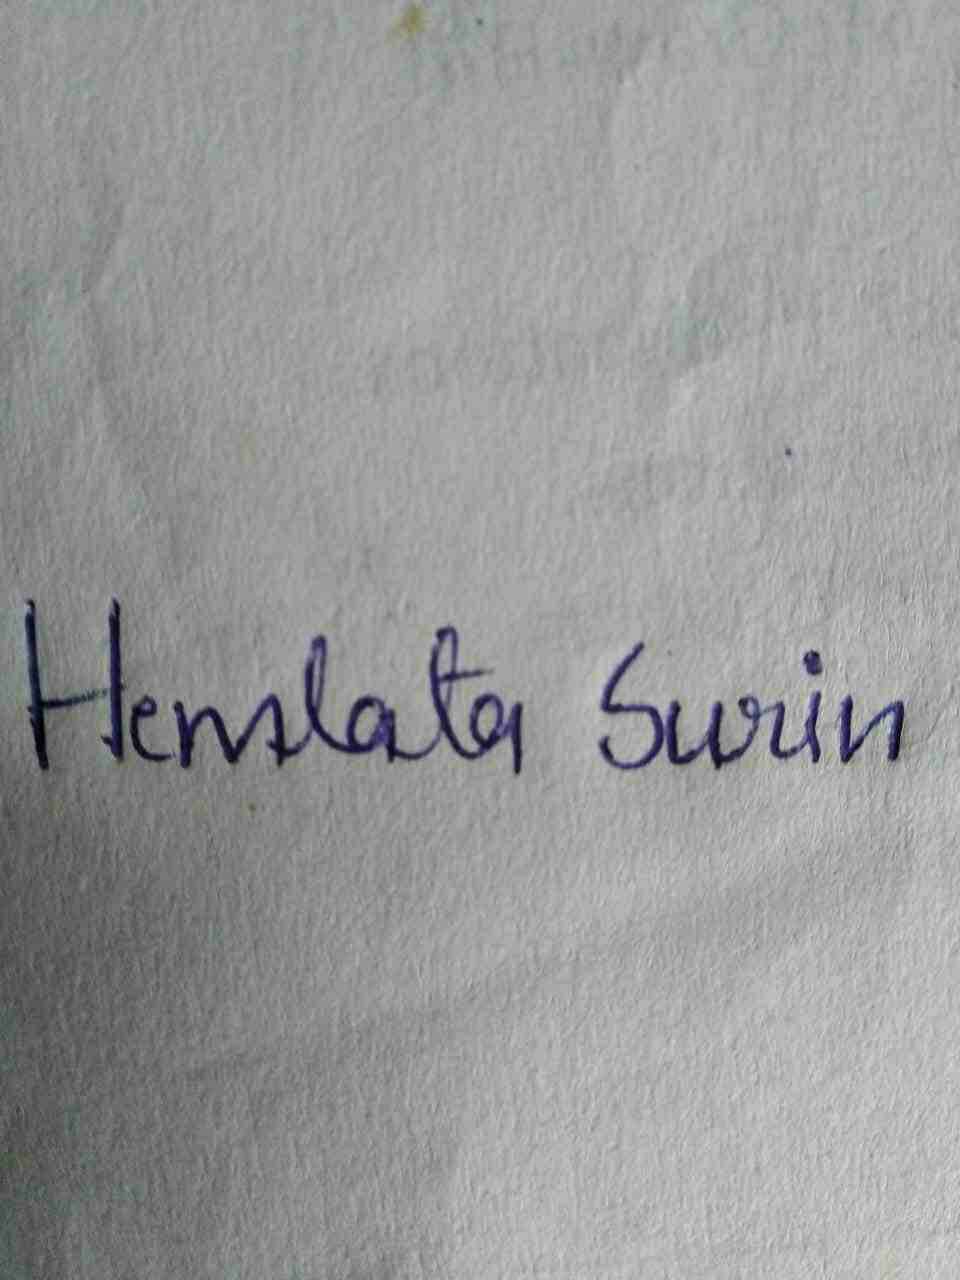 Hemlata Surin